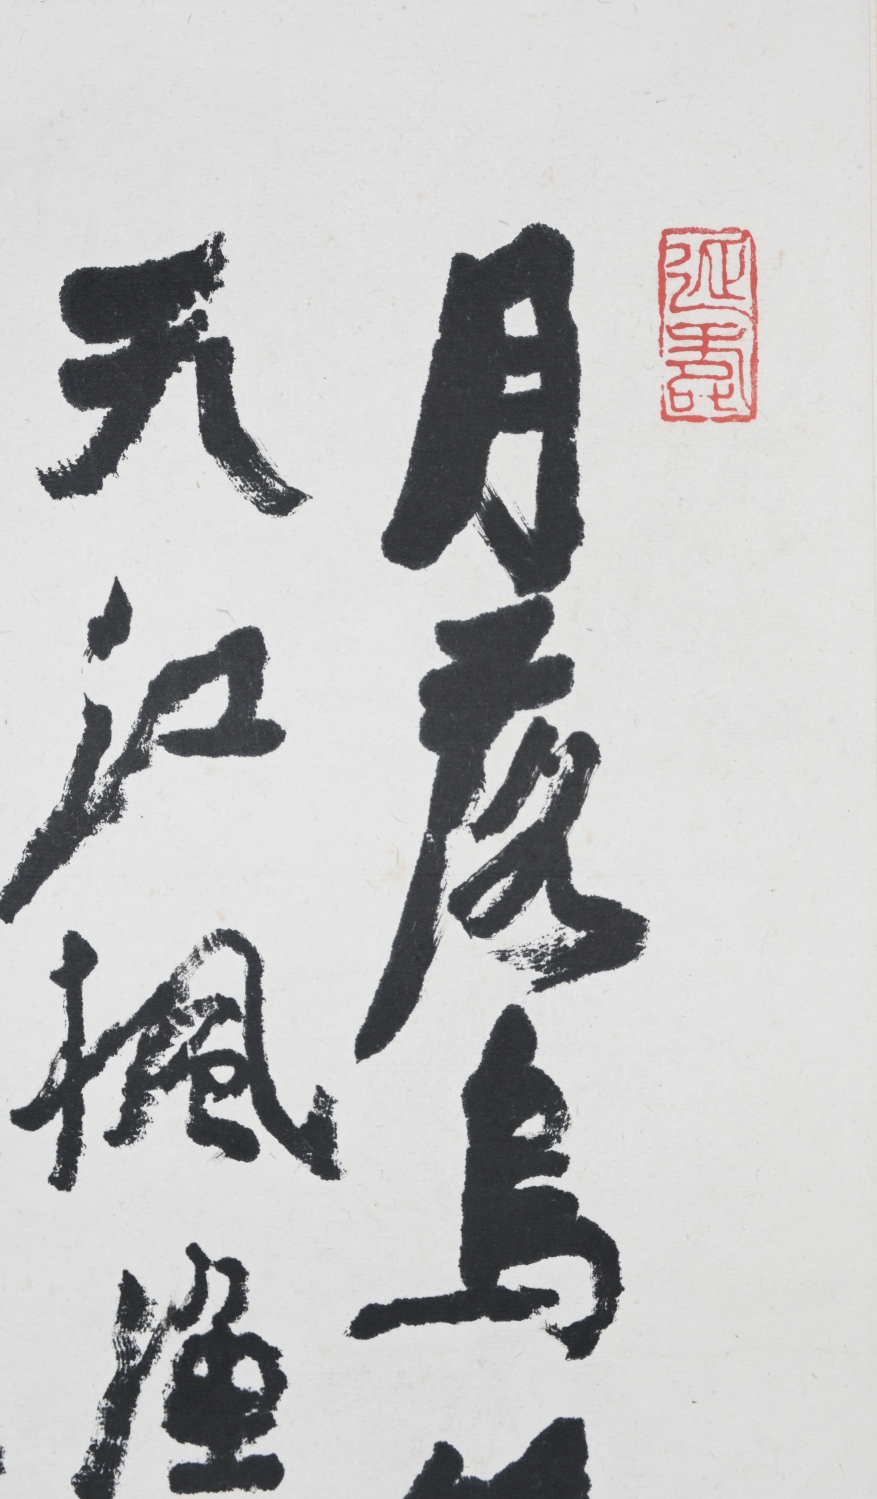 延壽
月落烏
天江楓漁